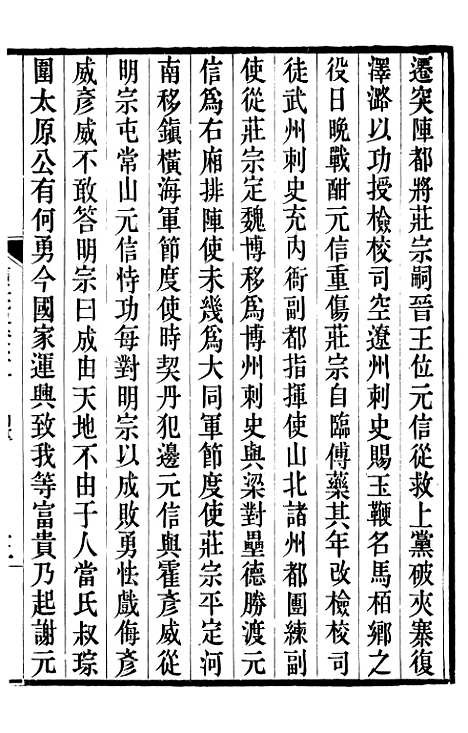 遷突陣都將莊宗嗣晉王位元信從救上黨破夾寨復
澤潞以功授檢校司空遼州刺史賜玉鞭名馬栢鄉之
役日晚戰酣元信重傷莊宗自臨傅藥其年改檢校司
徒武州刺史充內衙副都指揮使山北諸州都團練副
使從莊宗定魏博移爲博州刺史與梁對壘德勝渡元
信爲右廂排陣使未幾爲大同軍節度使莊宗平定河
南移鎭橫海軍節度使時契丹犯邊元信與霍彥威從
明宗屯常山元信恃功每對明宗以成敗勇怯戲侮彥
威彥威不敢答明宗曰成由天地不由于人當氏叔琮
圍太原公有何勇今國家運興致我等富貴乃起謝元